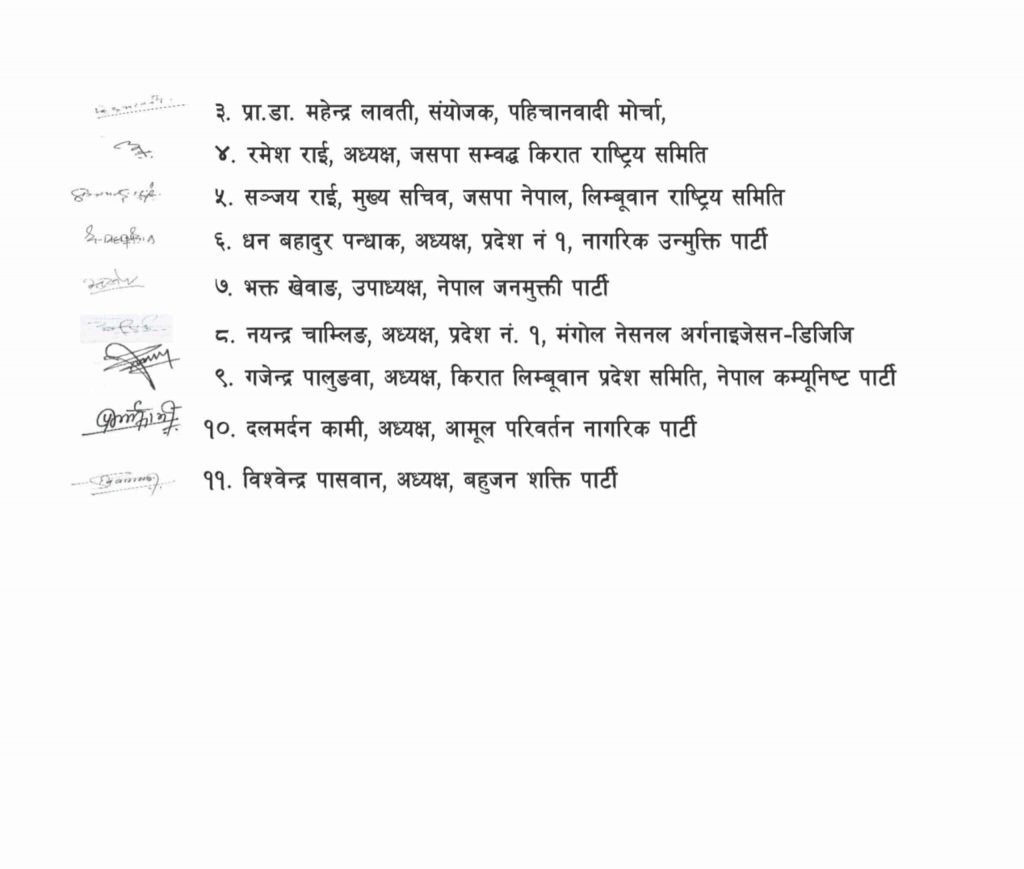 ३. प्रा.डा. महेन्द्र लावती, संयोजक, पहिचानवादी मोर्चा,
४. रमेश राई, अध्यक्ष, जसपा सम्वद्ध किरात राष्ट्रिय समिति
५. सञ्जय राई, मुख्य सचिव, जसपा नेपाल, लिम्बूवान राष्ट्रिय समिति
६. धन बहादुर पन्धाक, अध्यक्ष, प्रदेश नं १, नागरिक उन्मुक्ति पार्टी
७. भक्त खेवाङ, उपाध्यक्ष, नेपाल जनमुक्ती पार्टी
८. नयन्द्र चाम्लिङ, अध्यक्ष, प्रदेश नं. १, मंगोल नेसनल अर्गनाइजेसन-डिजिजि
९. गजेन्द्र पालुङवा, अध्यक्ष, किरात लिम्बूवान प्रदेश समिति, नेपाल कम्यूनिष्ट पार्टी
१०. दलमर्दन कामी, अध्यक्ष, आमूल परिवर्तन नागरिक पार्टी
११. विश्वेन्द्र पासवान, अध्यक्ष, बहुजन शक्ति पार्टी